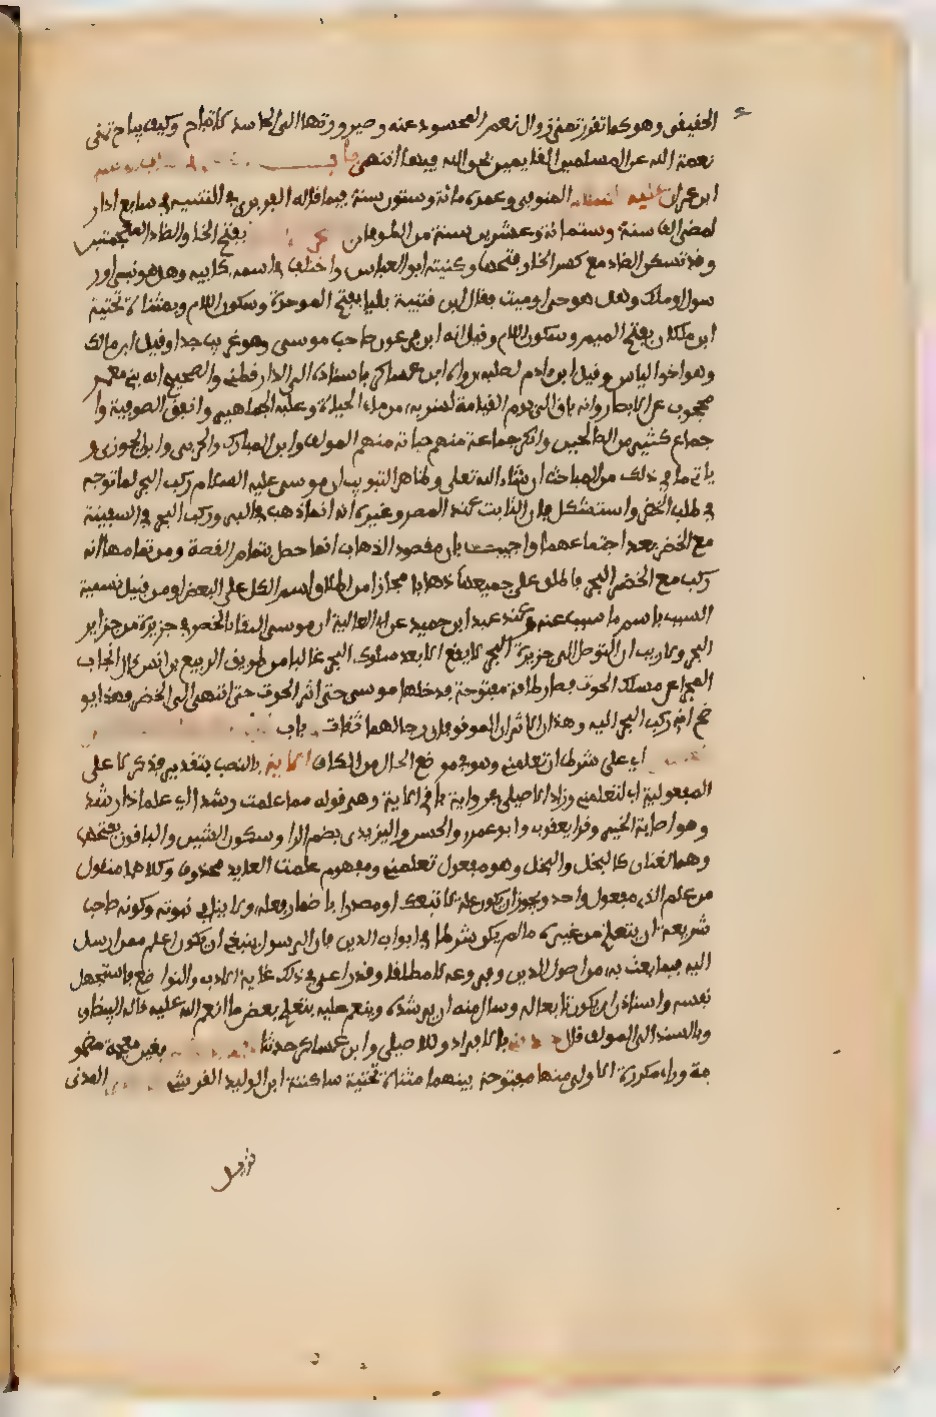 الحقيقي وهو كما تقرر تمنى زوال نعم المحسود عنه وصيرورتها الى الحاسد كما تباح وكيف يباح تمنى
نعمة الله عن المسلمين القايمين بحق الله فيها انتهى باب
ابن عمران عليه المتوفى وعمره مائة وستون سنة فيما قاله الفربري في التنبيه في سابع اذار
لمضى الف سنة وستمائة وعشرين سنة من الطوفان بفتح الخا والضاد المعجمتين
وقد تسكن الضاد مع كسر الخا وفتحها وكنيته ابو العباس واختلف في اسمه كابيه وهل هو نبي او ر
سول او ملك وهل هو حي او ميت فقال ابن قتيبة بليا بفتح الموحدة وسكون اللام وبمثناة تحتية
ابن ملكان بفتح الميم وسكون اللام وقيل انه ابن فرعون صاحب موسى وهو غريب جدا وقيل ابن مالك
وهو اخو الياس وقيل ابن ءادم لصلبه رواه ابن عساكر باسناده الى الدارقطني والصحيح انه نبي معمر
محجوب عن الابصار وانه باق الى يوم القيامة لشربه من ماء الحياة وعليه الجماهير واتفق الصوفية وا
جماع كثير من الصالحين وانكر جماعة منهم حياته منهم المولف وابن المبارك والحربي وابن الجوزي و
ياتي ما في ذلك من المباحث ان شاء الله تعلى وظاهر التبويب ان موسى عليه السلام ركب البحر لما توجه
في طلب الخضر واستشكل بان الثابت عند المص وغيره انه انما ذهب في البر وركب البحر في السفينة
مع الخضر بعد اجتماعهما واجيب بان مقصود الذهاب انما حصل بتمام القصة ومن تمامها انه
ركب مع الخضر البحر فاطلق على جميعها ذهابا مجازا من اطلاق اسم الكل على البعض او من قبيل تسمية
السبب باسم ما سبب عنه وعند عبد ابن حميد عن ابي العالية ان موسى التقا بالخضر في جزيرة من جزاير
البحر ولا ريب ان التوصل الى جزيرة البحر لا يقع الا بعد سلوك البحر غالبا من طريق الربيع بن انس قال انجاب
الما عن مسلك الحوت فصار طاقة مفتوحة فدخلها موسى حتى اثر الحوت حتى انتهى الى الخضر فهذا يو
ضح انه ركب البحر اليه وهذان الاثران الموقوفان رجالهما ثقات باب
اي على شرط ان تعلمني وهو في موضع الحال من الكاف الاية بالنصب بتقدير فذكر لا على
المفعولية اي لتعلمني وزاد الاصيلي في رواية باقي الاية وهو قوله مما علمت رشدا اي علما ذا رشد
وهو اصابة الخير وقرا يعقوب وابو عمرو والحسن واليزيدي بضم الرا وسكون الشين والباقون بفتحهما
وهما لغتان كالبخل والبخل وهو مفعول تعلمني ومفهوم علمت العايد محذوف وكلاهما منقول
من علم الذي مفعول واحد ويجوز ان يكون علة لاتبعك او مصدرا باضمار فعله ولا ينافي نبوته وكونه صاحب
شريعة ان يتعلم من غيره ما لم يكن شرطا في ابواب الدين فان الرسول ينبغي ان يكون اعلم ممن ارسل
اليه فيما بعث به من اصول الدين وفروعه لا مطلقا وقد راعى في ذلك غاية الادب والتواضع فاستجهل
نفسه واستاذن ان يكون تابعا له وسال منه ان يرشده وينعم عليه بتعليم بعض ما انعم الله عليه قاله البيضاوي
وبالسند الى المولف قال بالافراد وللاصيلي وابن عساكر حدثنا بغين معجمة مضمو
مة وراء مكررة الاولى منهما مفتوحة بينهما مثناة تحتية ساكنة ابن الوليد القرشي المدني
نزيل